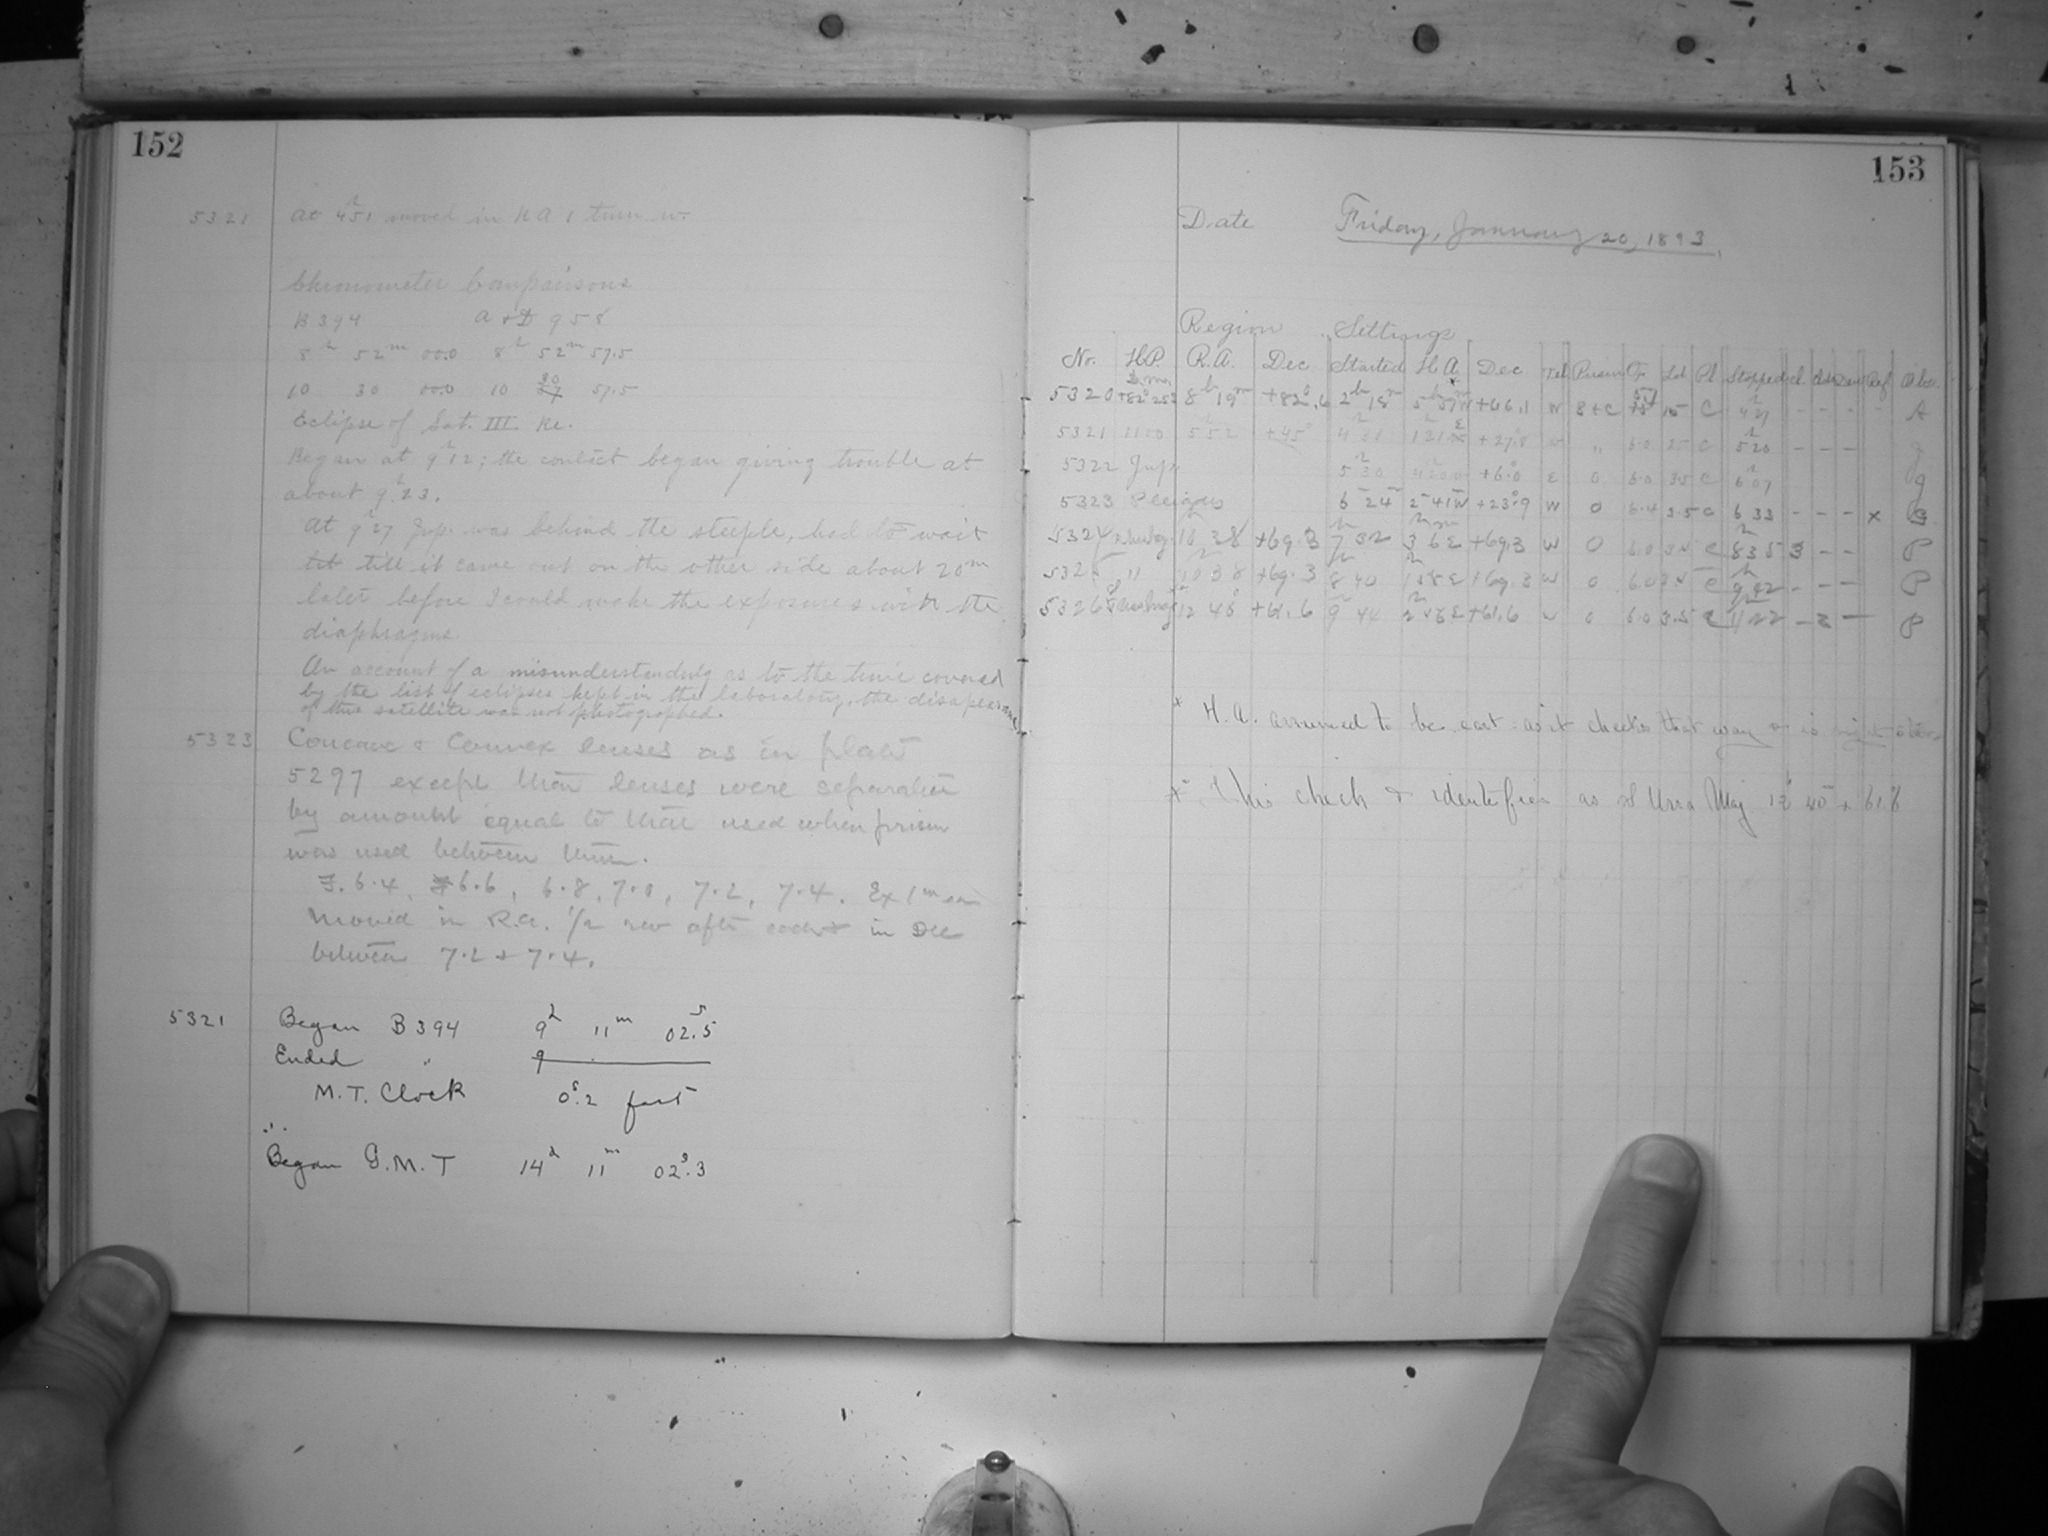 152
5321 At 4h51 moved in R A 1 turn w.
Chronometer Comparisons
B 394 A + D 958
8h 52m 00.0 8h 52m 57.5
10 30 00.0 10 30 57.5
Eclipse of Sat. III Re.
Began at 9h12; the contact began giving trouble at
about 9h23.
At 9h27 Jup. was behind the steeple, had to wait
till it came out on the other side about 20m
later before I could make the exposures with the
diaphragms.
On account of a misunderstanding as to the time covered
by the list of eclipses kept in the laboratory, the disappearance
of this satellite was not photographed.
5323 Concave & Convex lenses as in plate
5297 except that lenses were separated
by amount equal to that used when prism
was used between them.
F. 6.4, 6.6, 6.8, 7.0, 7.2, 7.4. Ex 1m each
Moved in R.A. 1/2 rev after each & in Dec
between 7.2 & 7.4.
5321 Began B 394 9h 11m 02.s5
Ended " 9
M.T. Clock 0.s2 fast
∴
Began G.M.T 14h 11m 02.s3
153
Date Friday, January 20, 1893.
Region Settings
No. H.P. R.A. Dec Started H A* Dec Tel Prism Fo. Pl Stopped Obs.
5320 +82° 8h 19m +82°.6 2h 18m +46.1 W 8+C 15 C 4 27 - - - - A
5321 1100 5 52 +45° 4 31 1 21 E +27.8 w " 6.0 25 C 5 20 - - - g
5322 Jup. 5h30 +6°.0 E 0 6.0 35 C 6h07 g
5323 Pleiades 6 24 2 41W +23°.9 W 0 6.4 3.5 C 6 33 - - - x
5324 10 38 +69.3 7 32 3 6E +69.3 W 0 6.0 C 8 35 3 - - P
532 " 10 38 +69.3 8 40 1 58E +69.3 W 0 6.0 C 9 42 - - - P
5326 12 40 +61.6 9 44 +61.6 w 0 6.0 3.5 C 11 22 - 2 - P
* H.A. assumed to be east as it checks that way &
* This check & identifies as S Ursa Maj. 12h 40 + 61.6